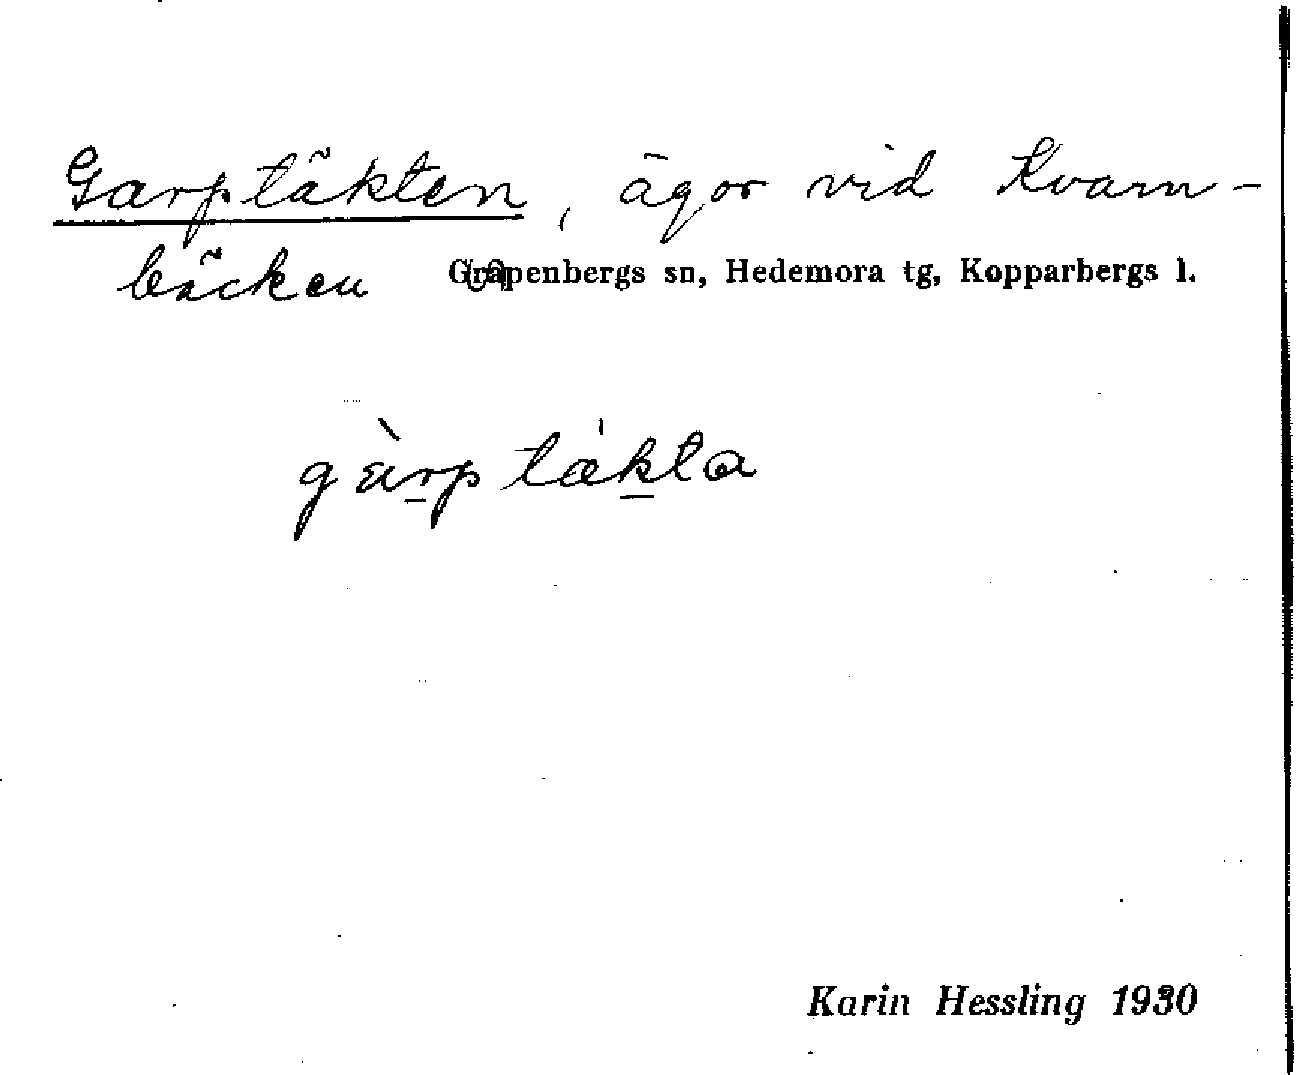 Garptäkten, ägor vid Kvarn-
bäcken Grapenbergs sn, Hedemora tg, Kopparbergs l.
gàrptákta
Karin Hessling 1930